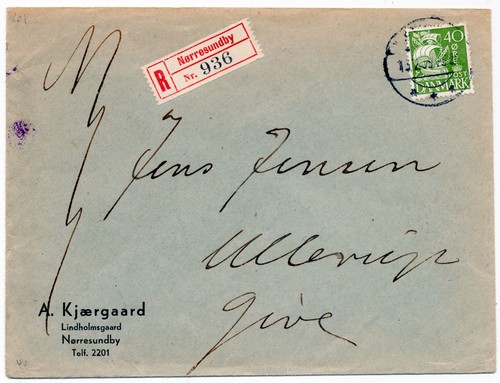 Nørresundby
R
Nr. 936
40
ØRE
POST
DANMARK
Jens Jensen
Ullerup
Give
A. Kjærgaard
Lindholmsgaard
Nørresundby
Telf. 2201